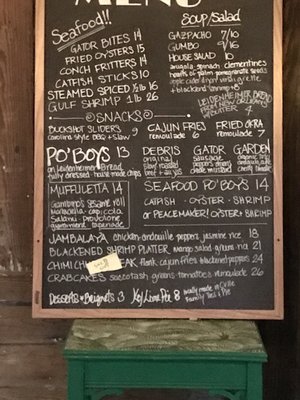 MENU
Seafood!!
GATOR BITES 14
FRIED OYSTERS 15
CONCH FRITTERS 14
CATFISH STICKS 10
STEAMED SPICED 1/2 lb 16
GULF SHRIMP 1 lb 26
SOUP/SALAD
GAZPACHO 7/10
GUMBO 9/16
HOUSE SALAD 10
arugula spinach clementines
hearts of palm pomegranate seeds
+ blackened shrimp
LEIDENHEIMER BREAD
FROM NEW ORLEANS
4
SNACKS
BUCKSHOT SLIDERS 9
carolina style BBQ + slaw
CAJUN FRIES
remoulade 6
FRIED OKRA
remoulade 7
PO'BOYS 13
on Leidenheimer Bread
fully dressed · house made chips
DEBRIS
original
slow roasted
GATOR
sausage
peppers onions
GARDEN
organic
MUFFULETTA 14
Gambino's sesame roll
Mortadella, capicola
Salami, provolone
giardiniera, tapenade
SEAFOOD PO'BOYS 14
CATFISH · OYSTER · SHRIMP
or PEACEMAKER! OYSTER + SHRIMP
JAMBALAYA chicken · andouille · peppers, jasmine rice 18
BLACKENED SHRIMP PLATTER mango salsa, greens, rice 21
CHIMICHURRI STEAK flank, cajun fries, blackened peppers 24
CRABCAKES succotash, greens, tomatoes, remoulade 26
DESSERTS · Beignets 3 Key Lime Pie 8 locally made in Gville
Family Ties & Pie